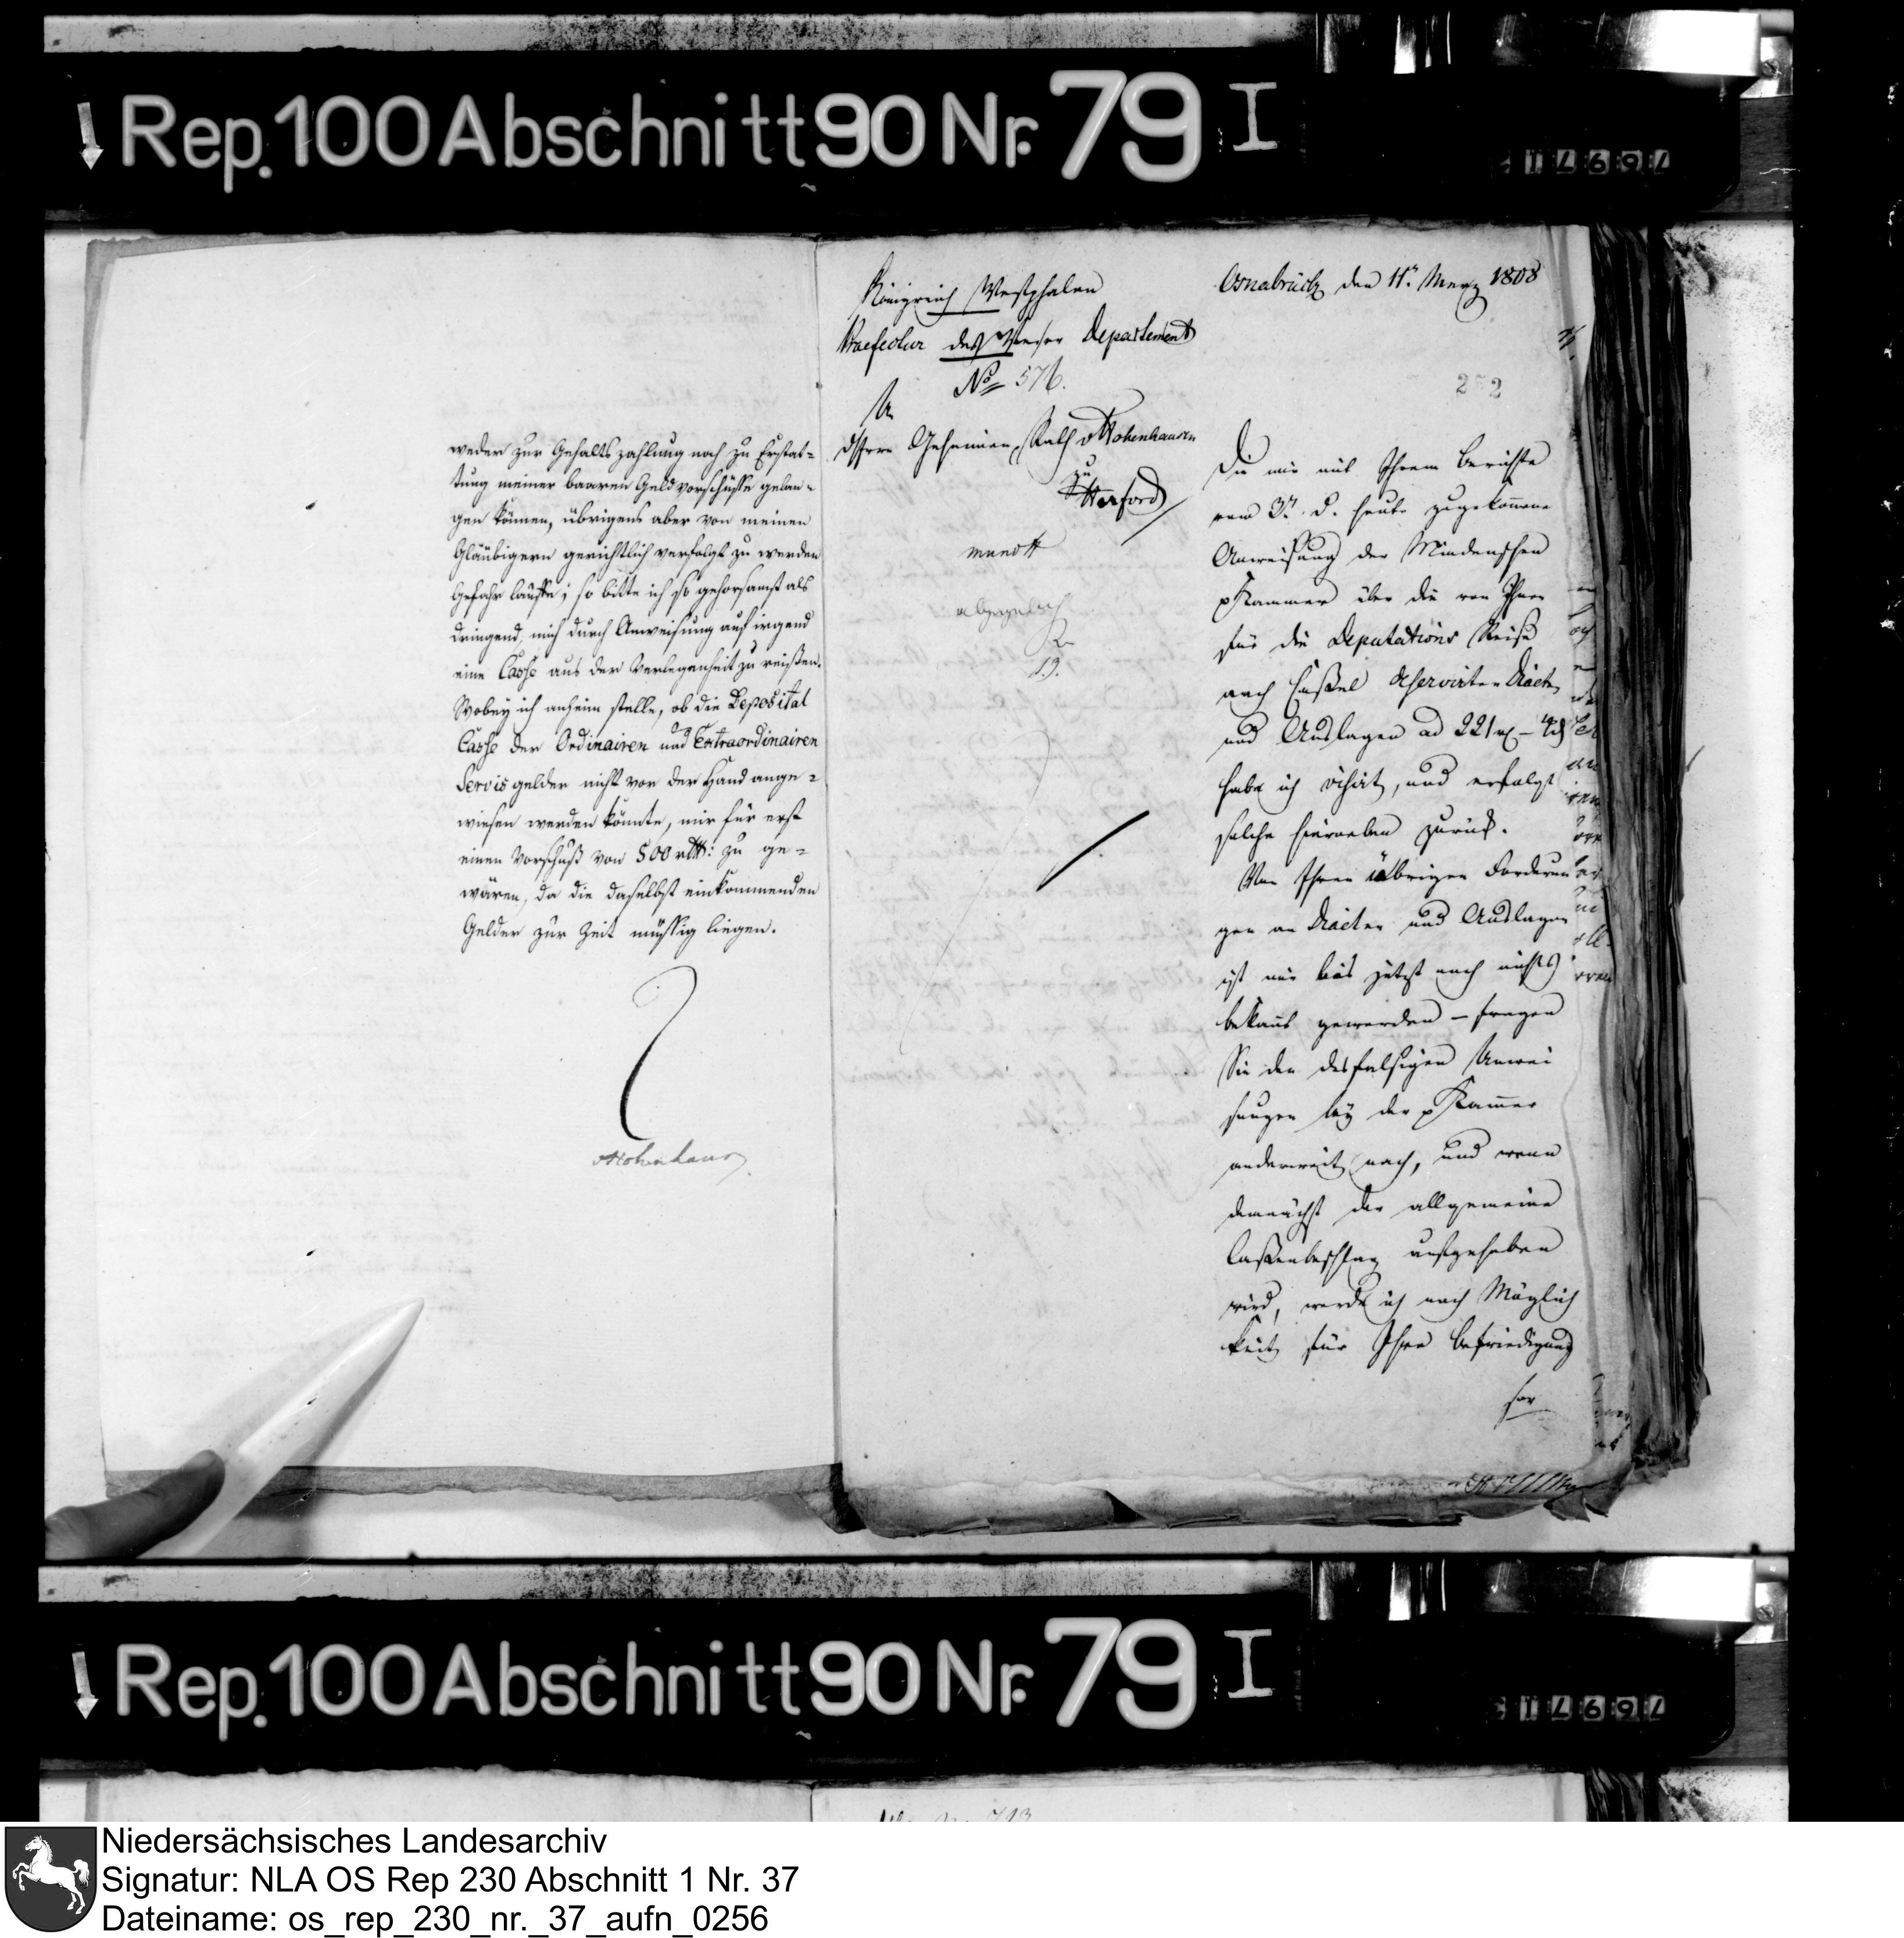 Rep. 100 Abschnitt 90 Nr. 79 I
weder zur Gehaltszahlung noch zu Erstat=
tung meiner baaren Geldvorschüsse gelan=
gen können, übrigens aber von meinen
Gläubigern gerichtlich verfolgt zu werden
Gefahr lauffe; so bitte ich so gehorsamst als
dringend, mich durch Anweisung auf irgend
eine Casse aus der Verlegenheit zu reißen.
Wobey ich anheim stelle, ob die Deposital
Casse der Ordinairen und Extraordinairen
Servisgelder nicht vor der Hand ange=
wiesen werden könnte, mir für erst
einen Vorschuß von 500 rthl: zu ge=
wären, da die daselbst einkommenden
Gelder zur Zeit müssig liegen.
vHohenhausen
Königreich Westphalen
Praefectur des Weser Departements
No 576.
An
Herrn Geheimen Rath v Hohenhausen
zu
Herford
mundt
19.
Osnabrück den 11n Merz 1808
252
Die mir mit Ihrem Berichte
vom 3n d. heute zugekommene
Anweisung der Mindenschen
p Kammer über die von Ihnen
für die Deputations Reise
nach Cassel deservirten Diäten
und Auslagen ad 221 rl
habe ich visirt, und erfolgt
solche hierneben zurück.
Von Ihren übrigen Forderun
gen an Diäten und Auslagen
ist mir bis jetzt noch nichts
bekant geworden – fragen
Sie den desfalsigen Anwei
sungen bey der p Kammer
anderweit nach, und wenn
demnächst der allgemeine
Cassenbeschlag aufgehoben
wird, werde ich nach Möglich
keit für Ihre Befriedigung
sor
Rep. 100 Abschnitt 90 Nr. 79 I
Niedersächsisches Landesarchiv
Signatur: NLA OS Rep 230 Abschnitt 1 Nr. 37
Dateiname: os_rep_230_nr._37_aufn_0256